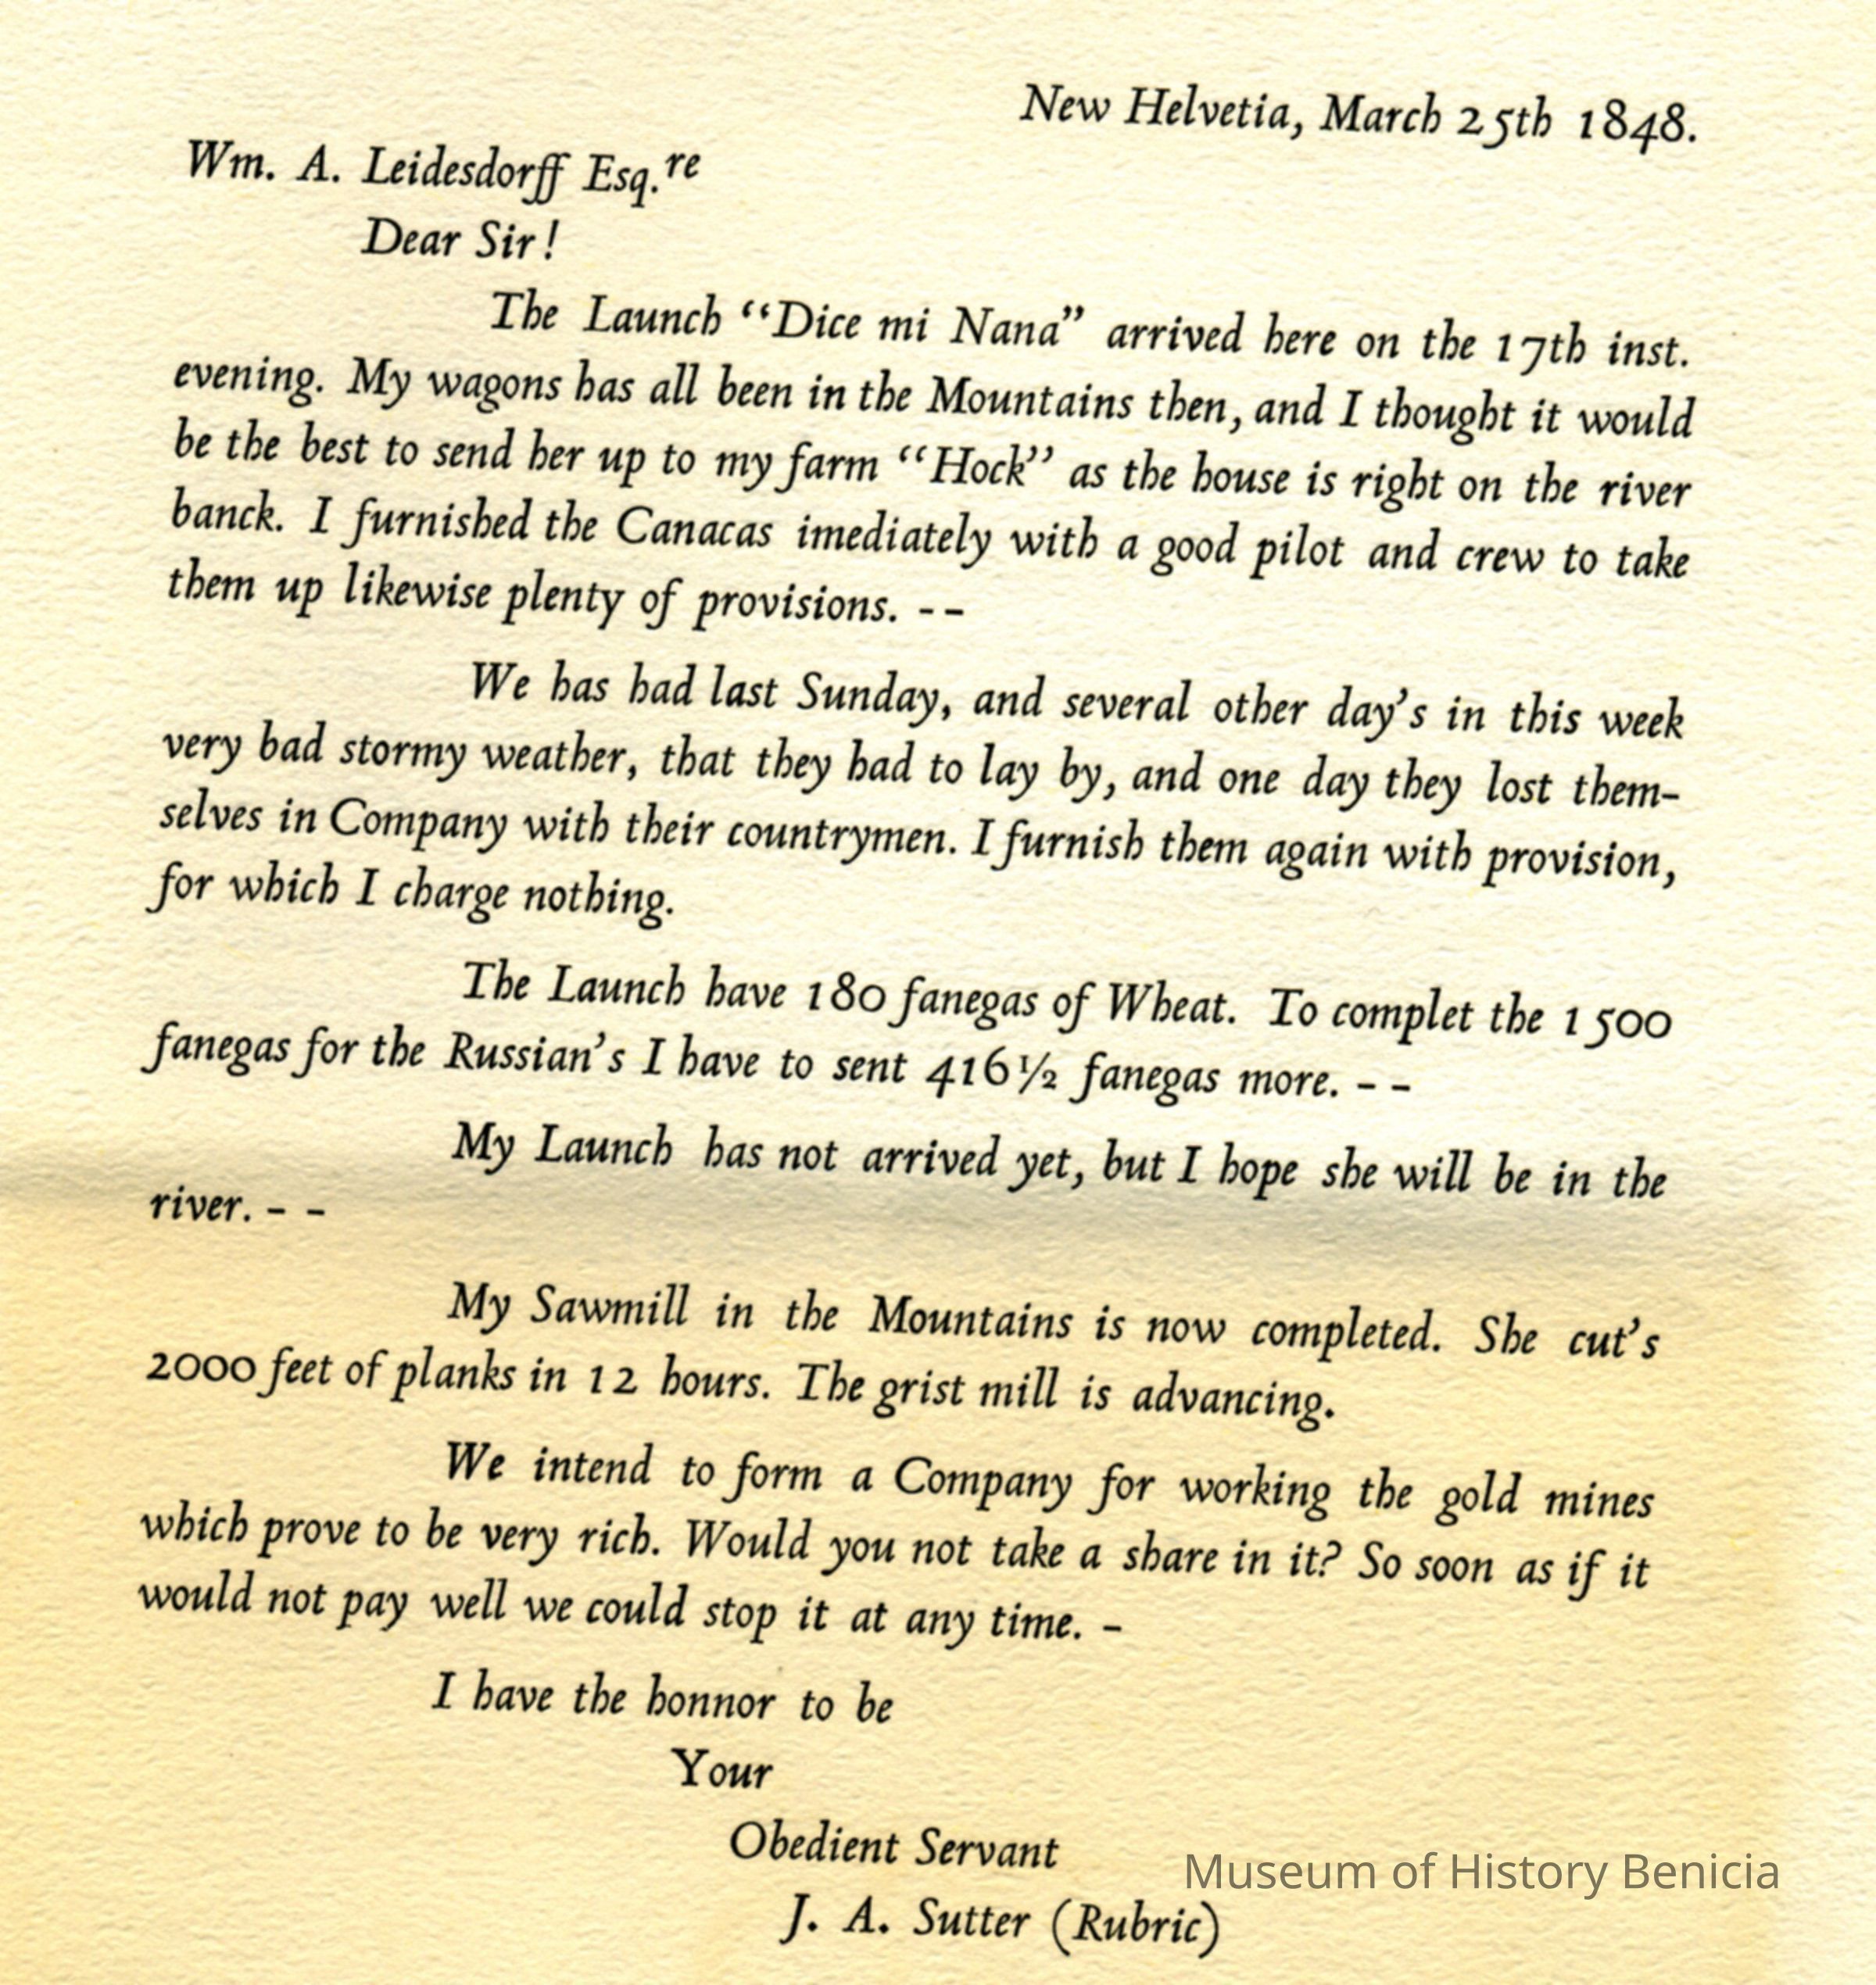 New Helvetia, March 25th 1848.
Wm. A. Leidesdorff Esq.re
Dear Sir!
The Launch “Dice mi Nana” arrived here on the 17th inst.
evening. My wagons has all been in the Mountains then, and I thought it would
be the best to send her up to my farm “Hock” as the house is right on the river
banck. I furnished the Canacas imediately with a good pilot and crew to take
them up likewise plenty of provisions. - -
We has had last Sunday, and several other day's in this week
very bad stormy weather, that they had to lay by, and one day they lost them-
selves in Company with their countrymen. I furnish them again with provision,
for which I charge nothing.
The Launch have 180 fanegas of Wheat. To complet the 1500
fanegas for the Russian's I have to sent 416½ fanegas more. - -
My Launch has not arrived yet, but I hope she will be in the
river. - -
My Sawmill in the Mountains is now completed. She cut's
2000 feet of planks in 12 hours. The grist mill is advancing.
We intend to form a Company for working the gold mines
which prove to be very rich. Would you not take a share in it? So soon as if it
would not pay well we could stop it at any time. -
I have the honnor to be
Your
Obedient Servant
Museum of History Benicia
J. A. Sutter (Rubric)